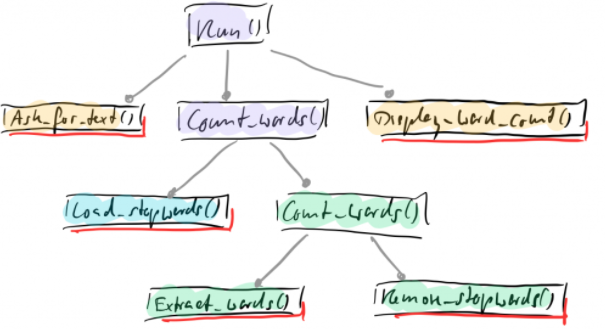 Run()
Ask_for_text()
Count_words()
Display_word_count()
Load_stopwords()
Count_words()
Extract_words()
Remove_stopwords()